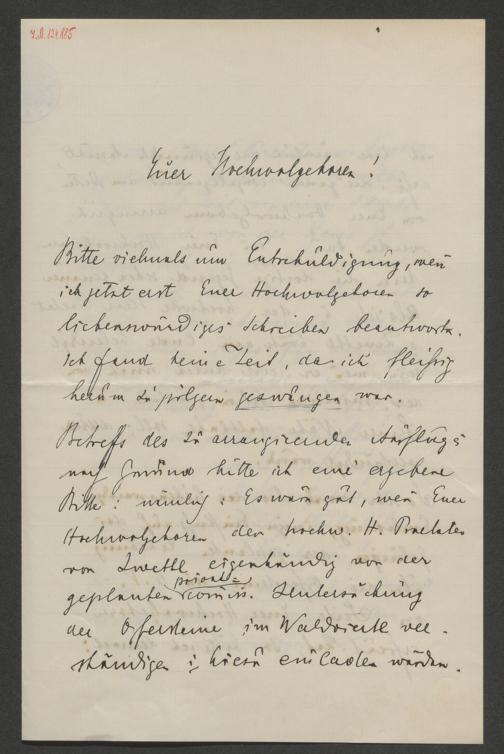 I.N. 124.185
Euer Hochwolgeboren!
Bitte vielmals um Entschüldigüng, weñ
ich jetzt erst Euer Hochwolgeboren so
liebenswürdiges Schreiben beantworte.
Ich fand keine Zeit, da ich fleißig
herüm zü pilgern gezwüngen war.
Betreffs des zü arrangirenden Aüsflügs
nach Gmünd hätte ich eine ergebene
Bitte: nämlich: Es wäre güt, weñ Euer
Hochwolgeboren den hochw. H. Praelaten
von Zwettl eigenhändig von der
privat=
geplanten com̄is. Üntersüchüng
der Opfersteine im Waldviertel ver-
ständigen ü. hiezü einladen würden.